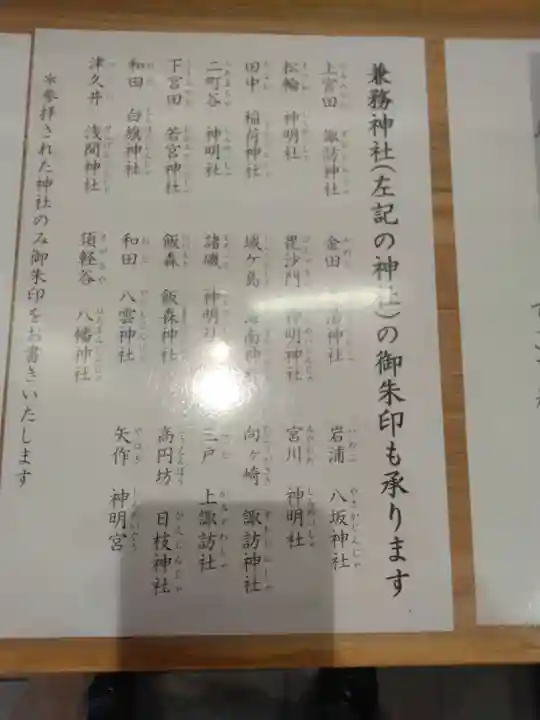 兼務神社(左記の神社)の御朱印も承ります
上宮田 諏訪神社
金田 神社
岩浦 八坂神社
松輪 神明社
毘沙門 神明神社
宮川 神明社
田中 稲荷神社
城ヶ島 海南神社
向ヶ崎 諏訪神社
二町谷 神明社
諸磯 神明社
二戸 上諏訪社
下宮田 若宮神社
飯森 飯森神社
高円坊 日枝神社
和田 白旗神社
和田 八雲神社
矢作 神明宮
津久井 浅間神社
須軽谷 八幡神社
*参拝された神社のみ御朱印をお書きいたします